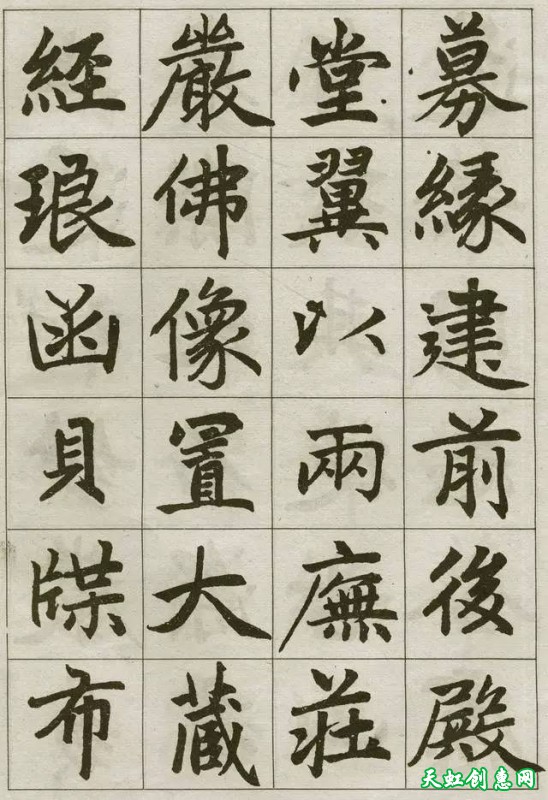 募緣建前後殿
堂翼以兩廡莊
嚴佛像置大藏
經琅函貝牒布
天虹创惠网